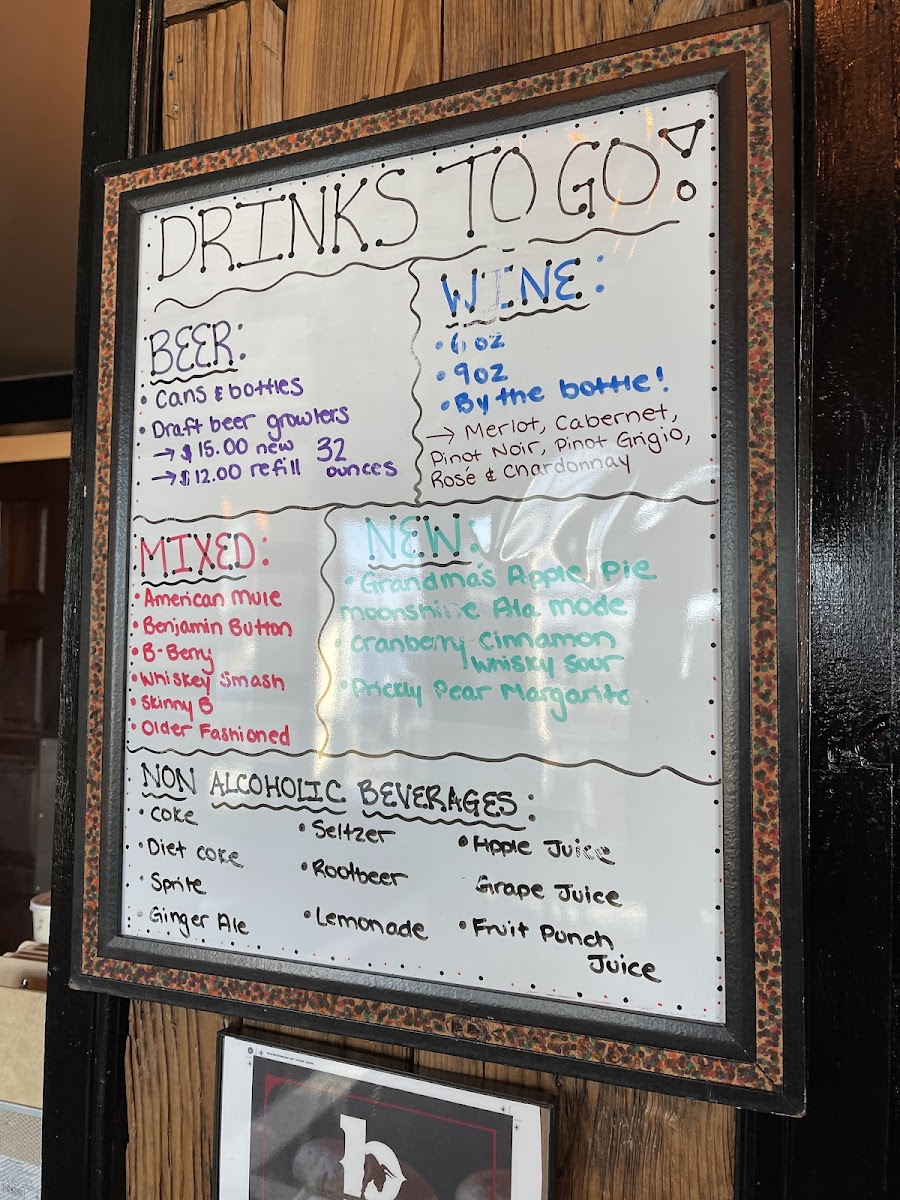 DRINKS TO GO!
BEER:
• Cans & bottles
• Draft beer growlers
→ $15.00 new 32
→ $12.00 refill ounces
WINE:
• 6 oz
• 9oz
• By the bottle!
→ Merlot, Cabernet,
Pinot Noir, Pinot Grigio,
Rosé & Chardonnay
MIXED:
• American Mule
• Benjamin Button
• B-Berry
• Whiskey Smash
• Skinny B
• Older Fashioned
NEW:
• Grandma's Apple Pie
moonshine Ala mode
• Cranberry Cinnamon
Whisky Sour
• Prickly Pear Margarita
NON ALCOHOLIC BEVERAGES:
• Coke
• Diet Coke
• Sprite
• Ginger Ale
• Seltzer
• Rootbeer
• Lemonade
• Apple Juice
Grape Juice
• Fruit Punch
Juice
b